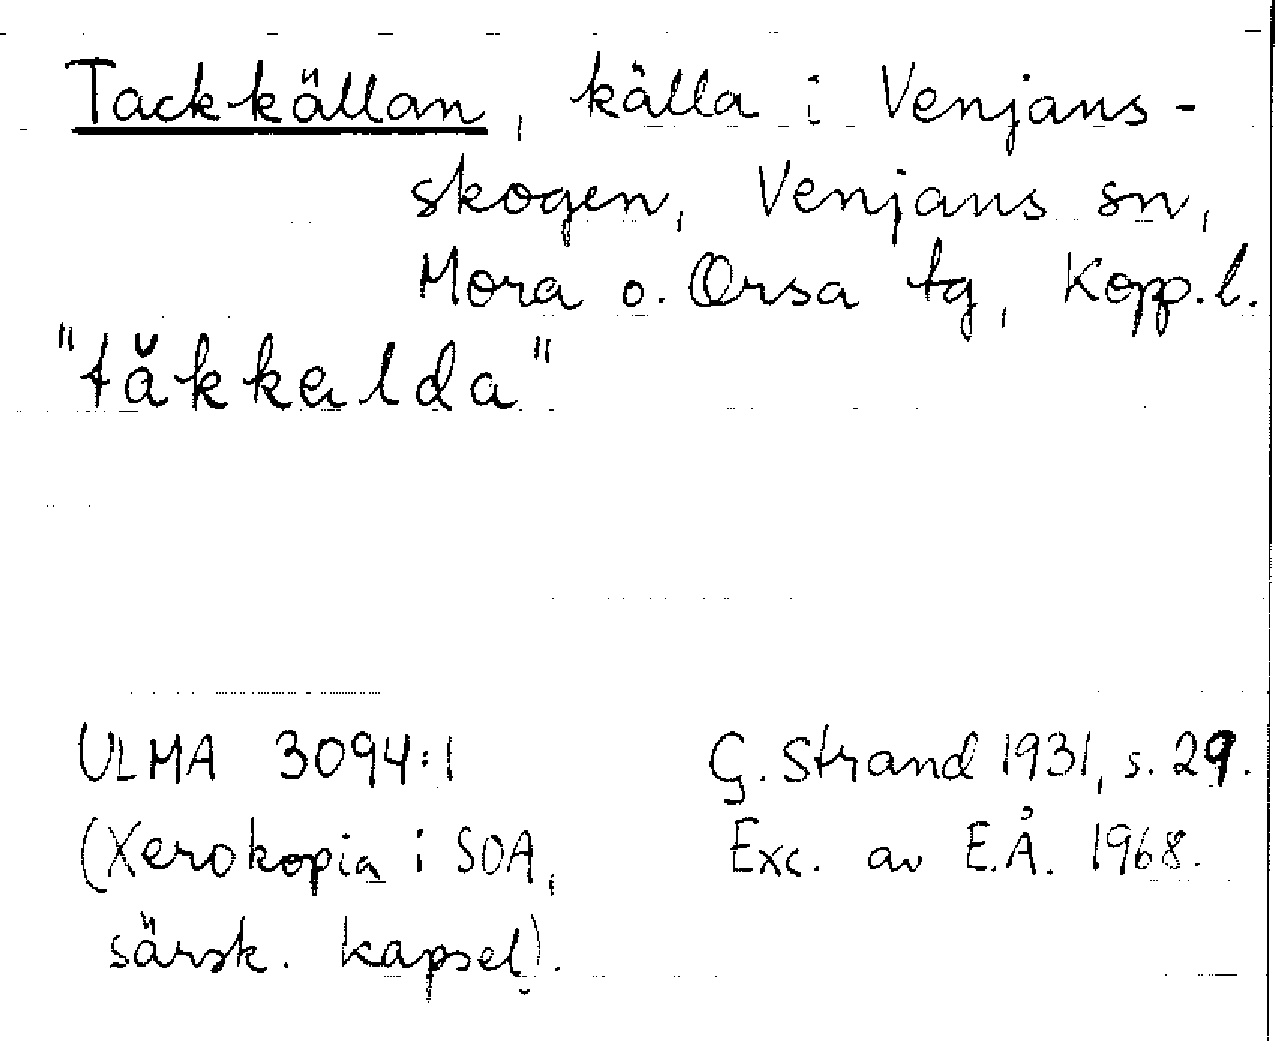 Tackkällan, källa i Venjans-
skogen, Venjans sn,
Mora o. Orsa tg, Kopp.l.
"tăkkalda"
ULMA 3094:1 G. Strand 1931, s. 29.
(Xerokopia i SOA, Exc. av E.Å. 1968.
särsk. kapsel).